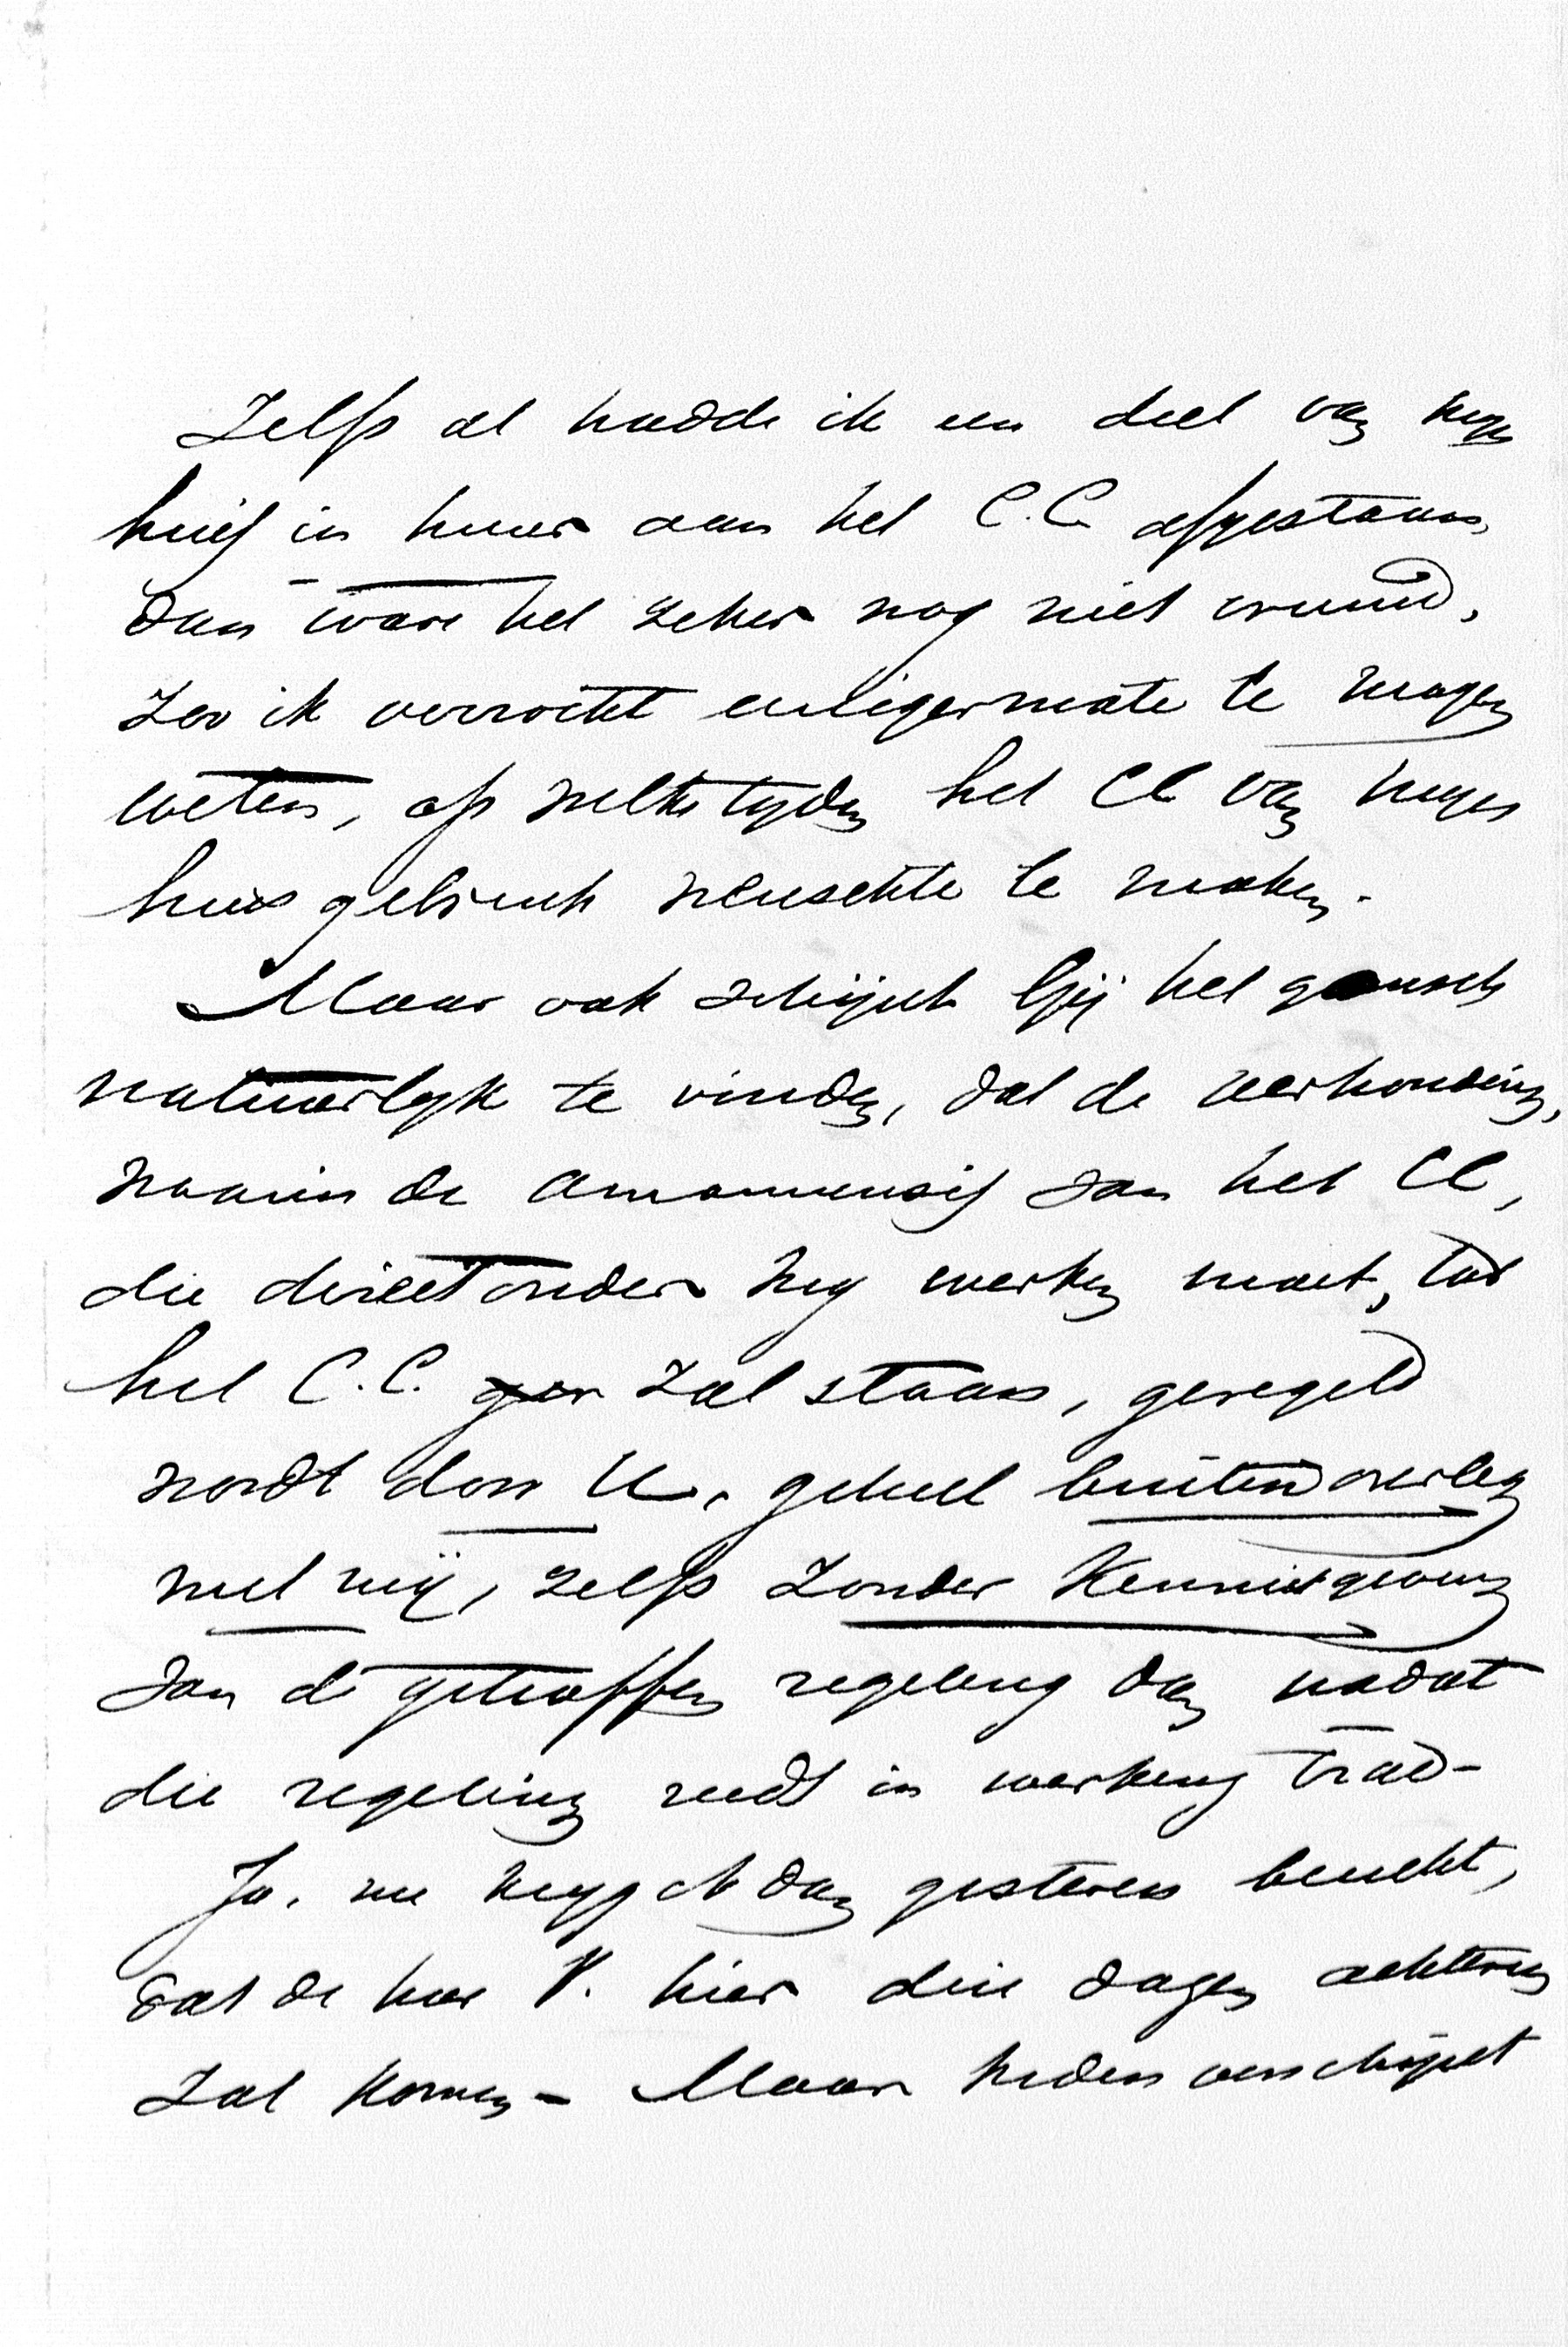 Zelfs al hadde ik een deel van mijn
huis in huur aan het C.C. afgestaan,
dan ware het zeker nog niet vreemd,
zoo ik verzocht eenigermate te mogen
weten, op welke tijden het CC van mijn
huis gebruik wenschte te maken.
Maar ook schijnt Gij het gansch
natuurlijk te vinden, dat de verhouding,
waarin de amanuensis van het CC,
die direct onder mij werken moet, tot
het C.C. zal staan, geregeld
wordt door U, geheel buiten overleg
met mij, zelfs zonder kennisgeving
van de getroffen regeling dan nadat
die regeling reeds in werking trad -
Ja, nu krijg ik dan gisteren bericht,
dat de heer V. hier drie dagen achtereen
zal komen - Maar heden verschijnt